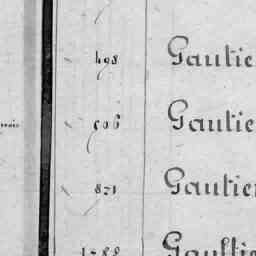 498 Gautie
506 Gautie
821 Gautier
1288 Gaultie